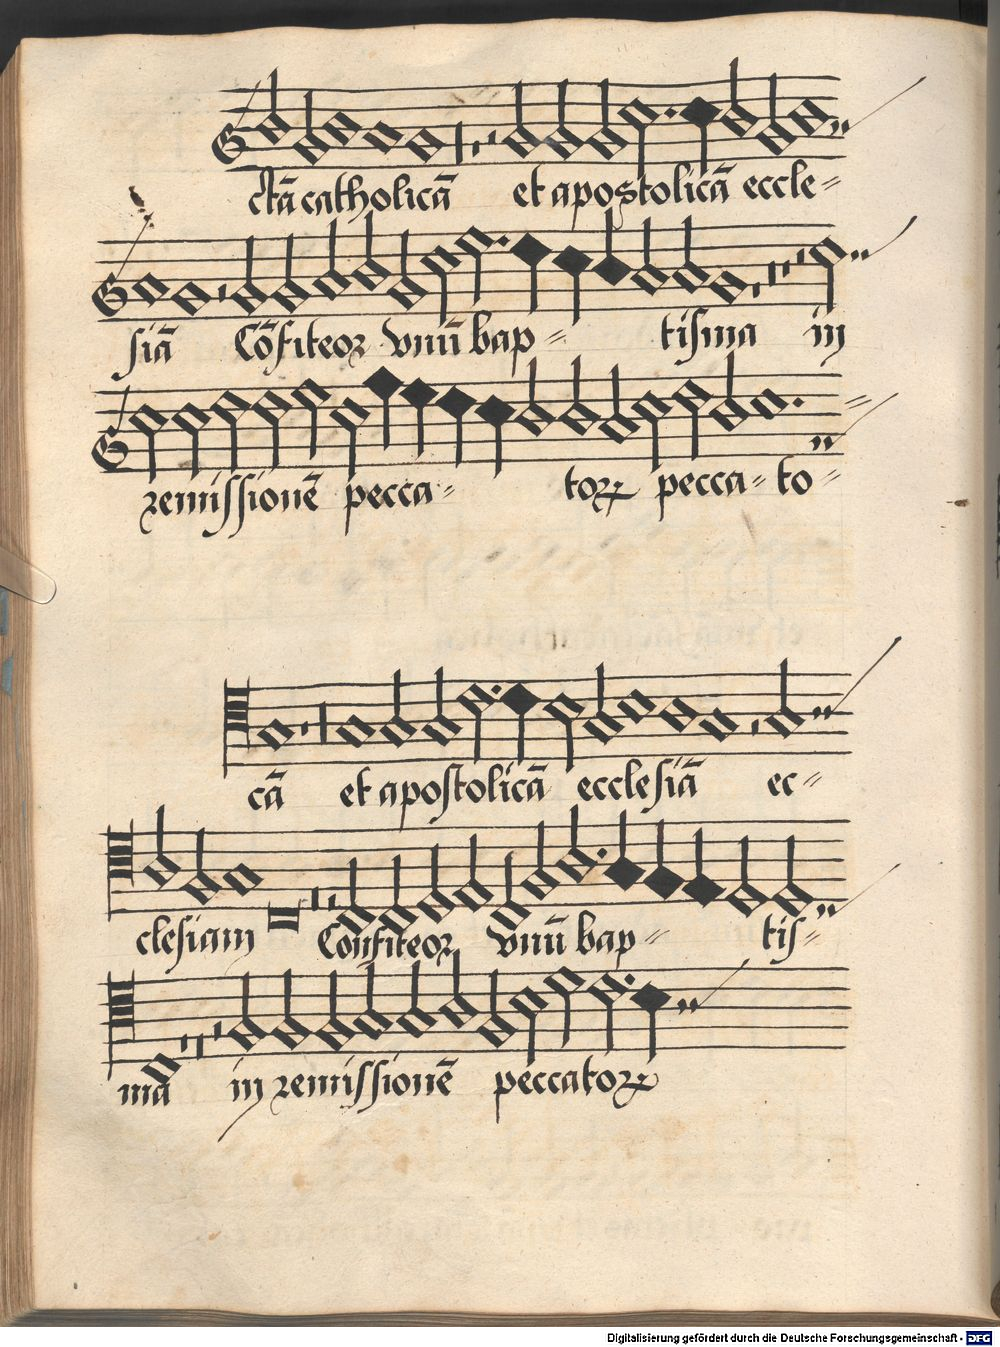 ctā catholicā et apostolicā eccle=
siā Cōfiteoꝛ vnū bap= tiſma in
remiſſionē pecca= toꝝ pecca= to=
cā et apoſtolicā eccleſiā ec=
cleſiam Confiteoꝛ vnū bap= tiſ=
ma in remiſſionē peccatoꝝ
Digitalisierung gefördert durch die Deutsche Forschungsgemeinschaft - DFG